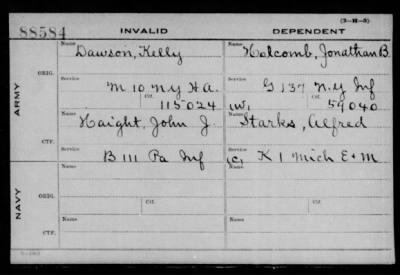 (3-H-5)
88584 INVALID DEPENDENT
Name Name
Dawson, Kelly Holcomb, Jonathan B.
ORIG.
Service Service
M 10 N.Y. H A. G 137 N.Y. Inf
Ctf. Ctf.
115024 (W) 59040
ARMY
Name Name
Haight, John J. Starks, Alfred
CTF.
Service Service
B 111 Pa Inf (C) K 1 Mich E & M
Name Name
ORIG.
Service Ctf. Service Ctf.
NAVY
Name Name
CTF.
Service Service